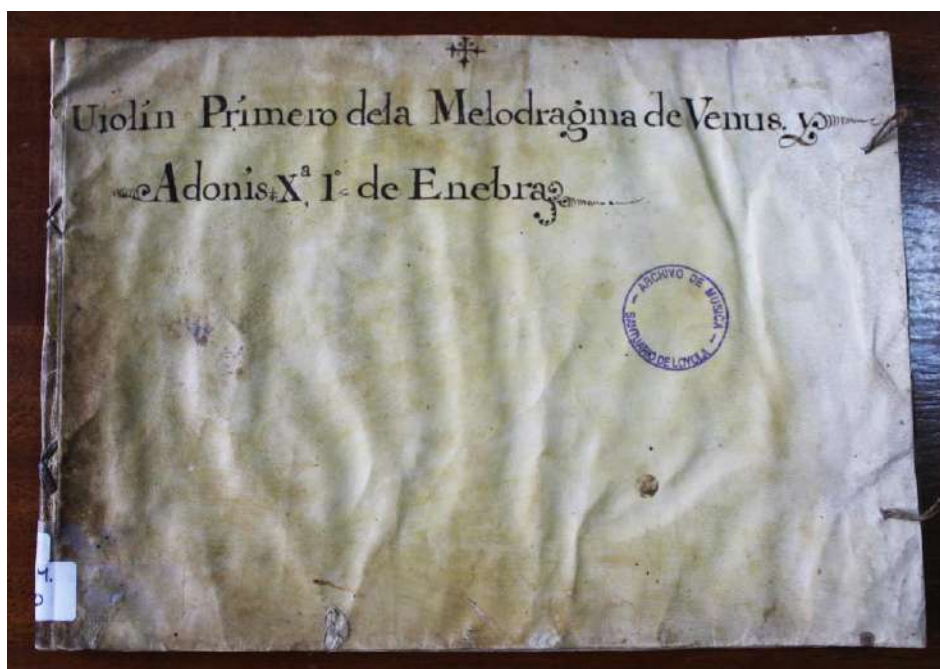 Uiolín Prímero dela Melodragma de Venus. y
Adonis. Xª 1ª de Enebra
ARCHIVO DE MUSICA
SANTUARIO DE LOYOLA